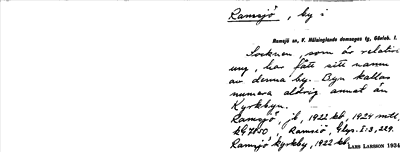 Ramsjö, by i
Ramsjö sn, V. Hälsinglands domsagas tg, Gävleb. l.
Socknen, som är relativt
ung, har fått sitt namn
av denna by. Byn kallas
numera aldrig annat än
Kyrkbyn.
Ramsjö, jb, 1922 kb, 1924 mtl,
Ramsiö, Glyps. I:3, 229.
Ramsjö kyrkby, 1922 kb.
LARS LARSSON 1934